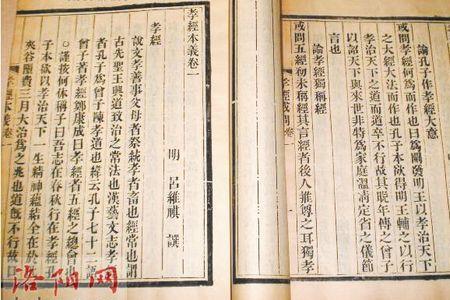 論孔子作孝經大意
或問孝經何爲而作也曰爲闡發明王以孝治天下
之大經大法而作也孔子本欲得明王輔之以行
孝治天下之道而道卒不行故其晚年傳之曾子
以詔天下與來世非特爲家庭溫凊定省之儀節
言也
論孝經獨稱經
或問五經初未稱經其言經者後人推尊之耳獨孝
孝經或問卷一
孝經本義卷一
明 呂維祺 譔
孝經
說文孝善事父母者祭統孝者畜也經常也謂
古先聖王興道致治之常法也漢藝文志孝
者孔子爲曾子陳孝道也緯云孔子七十二語
曾子著孝經鄭康成曰孝經者五經之總會
○謹按何休稱子曰吾志在春秋行在孝經孔
子本欲以孝治天下一生精神經結全在於
夾谷墮費三月大治爲之兆也道既不行故
孝經本義卷一
洛阳网